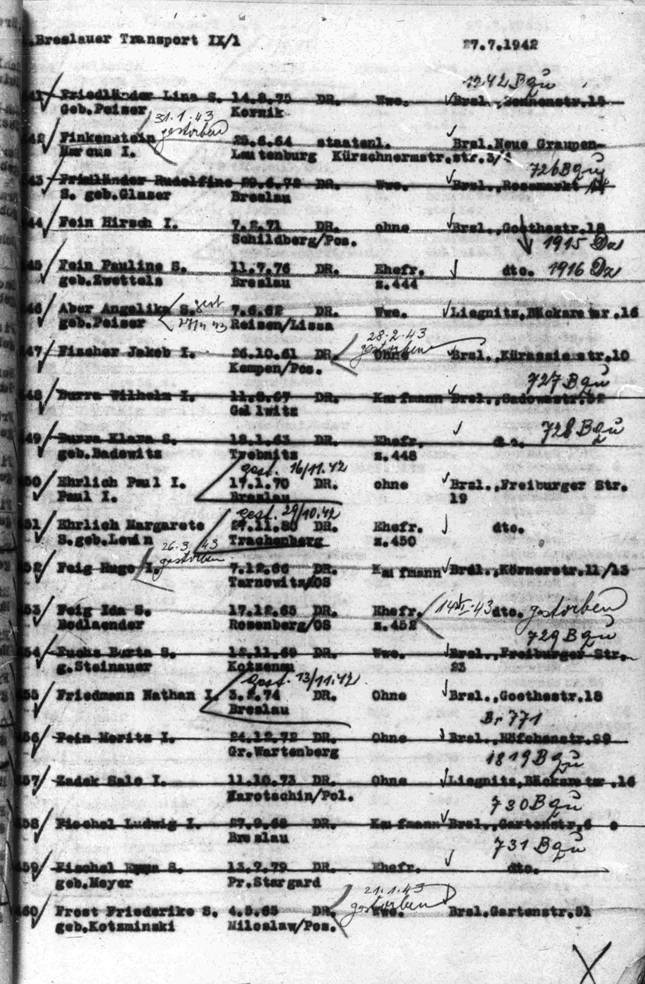 .Breslauer Transport IX/1 27.7.1942
1242 Bqu
41 Friedländer Lina S. 14.8.75 DR. Wwe. Brsl., Sonnenstr.18
geb.Peiser Kornik
31.1.43 gestorben
42 Finkenstein 25.6.64 staatenl. Brsl.Neue Graupen-
Marcus I. Lautenburg Kürschnermstr.str.3/
726 Bqu
43 Friedländer Rudolfine DR. Wwe. Brsl., Rossmarkt
S. geb.Glaser Breslau
44 Fein Hirsch I. 7.2.71 DR. ohne Brsl., Goethestr.18
Schildberg/Pos. 1915 Da
45 Fein Pauline S. 11.7.76 DR. Ehefr. dto. 1916 Da
geb.Zwettels Breslau z.444
46 Aber Angelika S. gest 7.6.62 DR. Wwe. Liegnitz, Bäckerstr.16
geb.Peiser Reisen/Lissa
28.2.43
47 Fischer Jakob I. 26.10.61 DR. Ohne gestorben Brsl., Kürassierstr.10
Kempen/Pos.
727 Bqu
48 Burra Wilhelm I. 11.8.67 DR. Kaufmann Brsl., Sadowastr.
Gleiwitz
49 Burra Klara S. DR. Ehefr. 728 Bqu
geb.Badewitz Trebnitz z.448
gest. 16/11.42
50 Ehrlich Paul I. 17.1.70 DR. ohne Brsl., Freiburger Str.
Paul I. Breslau 19
gest. 29/10.42
51 Ehrlich Margarete DR. Ehefr. dto.
S.geb.Lewin Trachenberg z.450
26.3.43 gestorben
52 Feig Hugo I. 7.12.66 DR. Kaufmann Brsl., Körnerstr.11/13
Tarnowitz/OS
53 Feig Ida S. 17.12.65 DR. Ehefr. dto. gestorben
Bodlaender Rosenberg/OS z.452
729 Bqu
54 Fuchs Berta S. 12.11.69 DR. Wwe. Brsl., Freiburger Str.
g.Steinauer Kotzenau 23
gest. 13/11.42
55 Friedmann Nathan I. 3.2.74 DR. Ohne Brsl., Goethestr.18
Breslau
Br 771
56 Fein Moritz I. 24.12.72 DR. Ohne Brsl., Höfchenstr.
Gr.Wartenberg
1819 Bqu
57 Zadek Salo I. 11.10.73 DR. Ohne Liegnitz, Bäckerstr.16
Krotoschin/Pol.
730 Bqu
58 Fischel Ludwig I. 27.9.68 DR. Kaufmann Brsl., Gartenstr.
Breslau
731 Bqu
59 Fischel S. 13.7.79 DR. Ehefr. dto.
geb.Meyer Pr.Stargard
21.1.43
60 Frost Friederike S. 4.5.65 DR. gestorben Wwe. Brsl.Gartenstr.91
geb.Kotzminski Miloslaw/Pos.
X